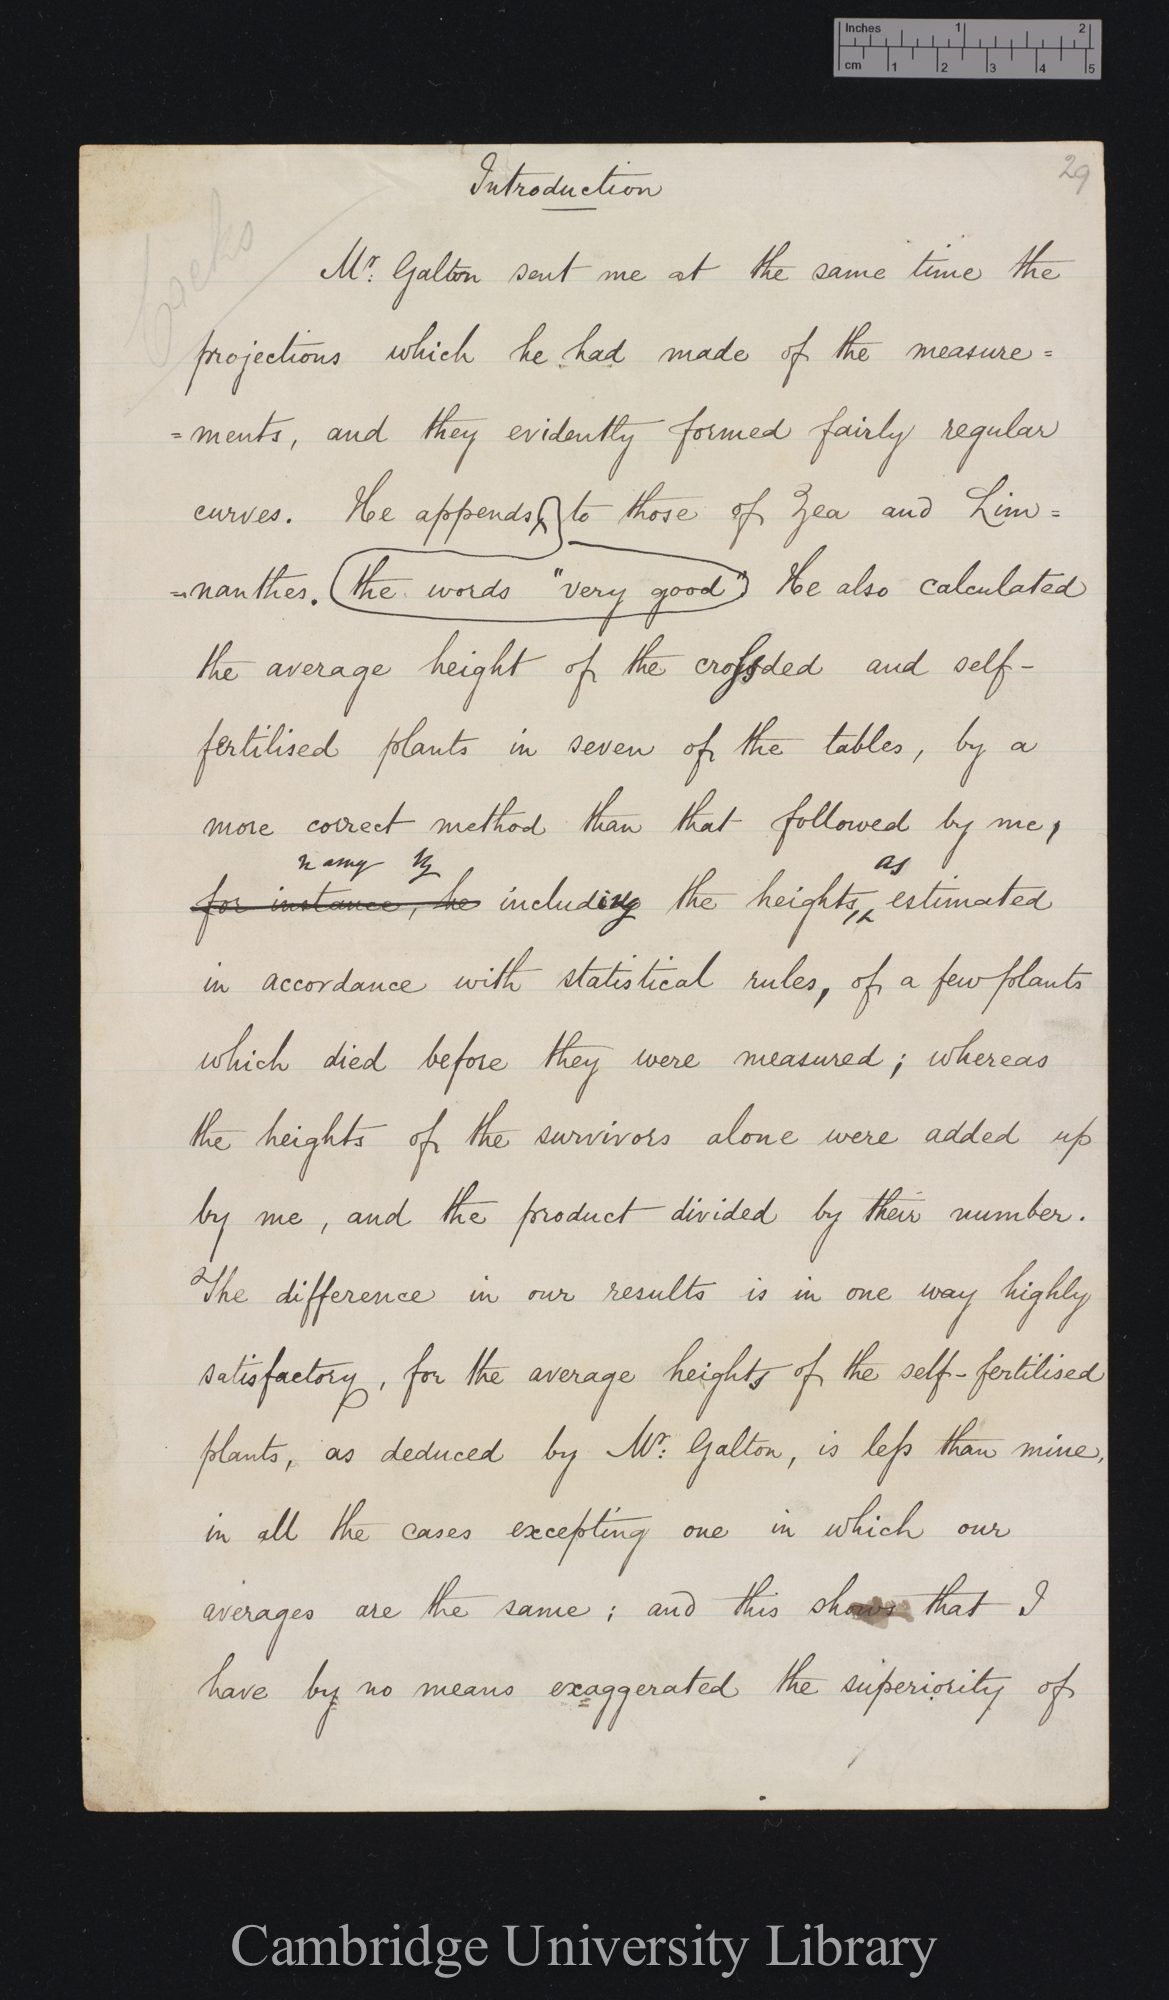 Inches 1 2
cm 1 2 3 4 5
29
Introduction
Mr. Galton sent me at the same time the
projections which he had made of the measure=
=ments, and they evidently formed fairly regular
curves. He appends to those of Zea and Lim=
=nanthes. the words "very good" He also calculated
the average height of the crossded and self-
fertilised plants in seven of the tables, by a
more correct method than that followed by me,
namely by as
for instance, he including the heights, estimated
in accordance with statistical rules, of a few plants
which died before they were measured; whereas
the heights of the survivors alone were added up
by me, and the product divided by their number.
The difference in our results is in one way highly
satisfactory, for the average heights of the self-fertilised
plants, as deduced by Mr. Galton, is less than mine,
in all the cases excepting one in which our
averages are the same; and this shows that I
have by no means exaggerated the superiority of
Cambridge University Library